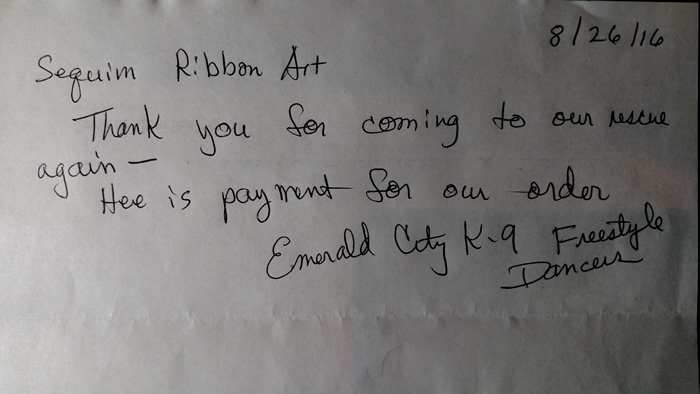 8/26/16
Sequim Ribbon Art
Thank you for coming to our rescue
again —
Here is payment for our order
Emerald City K-9 Freestyle
Dancers